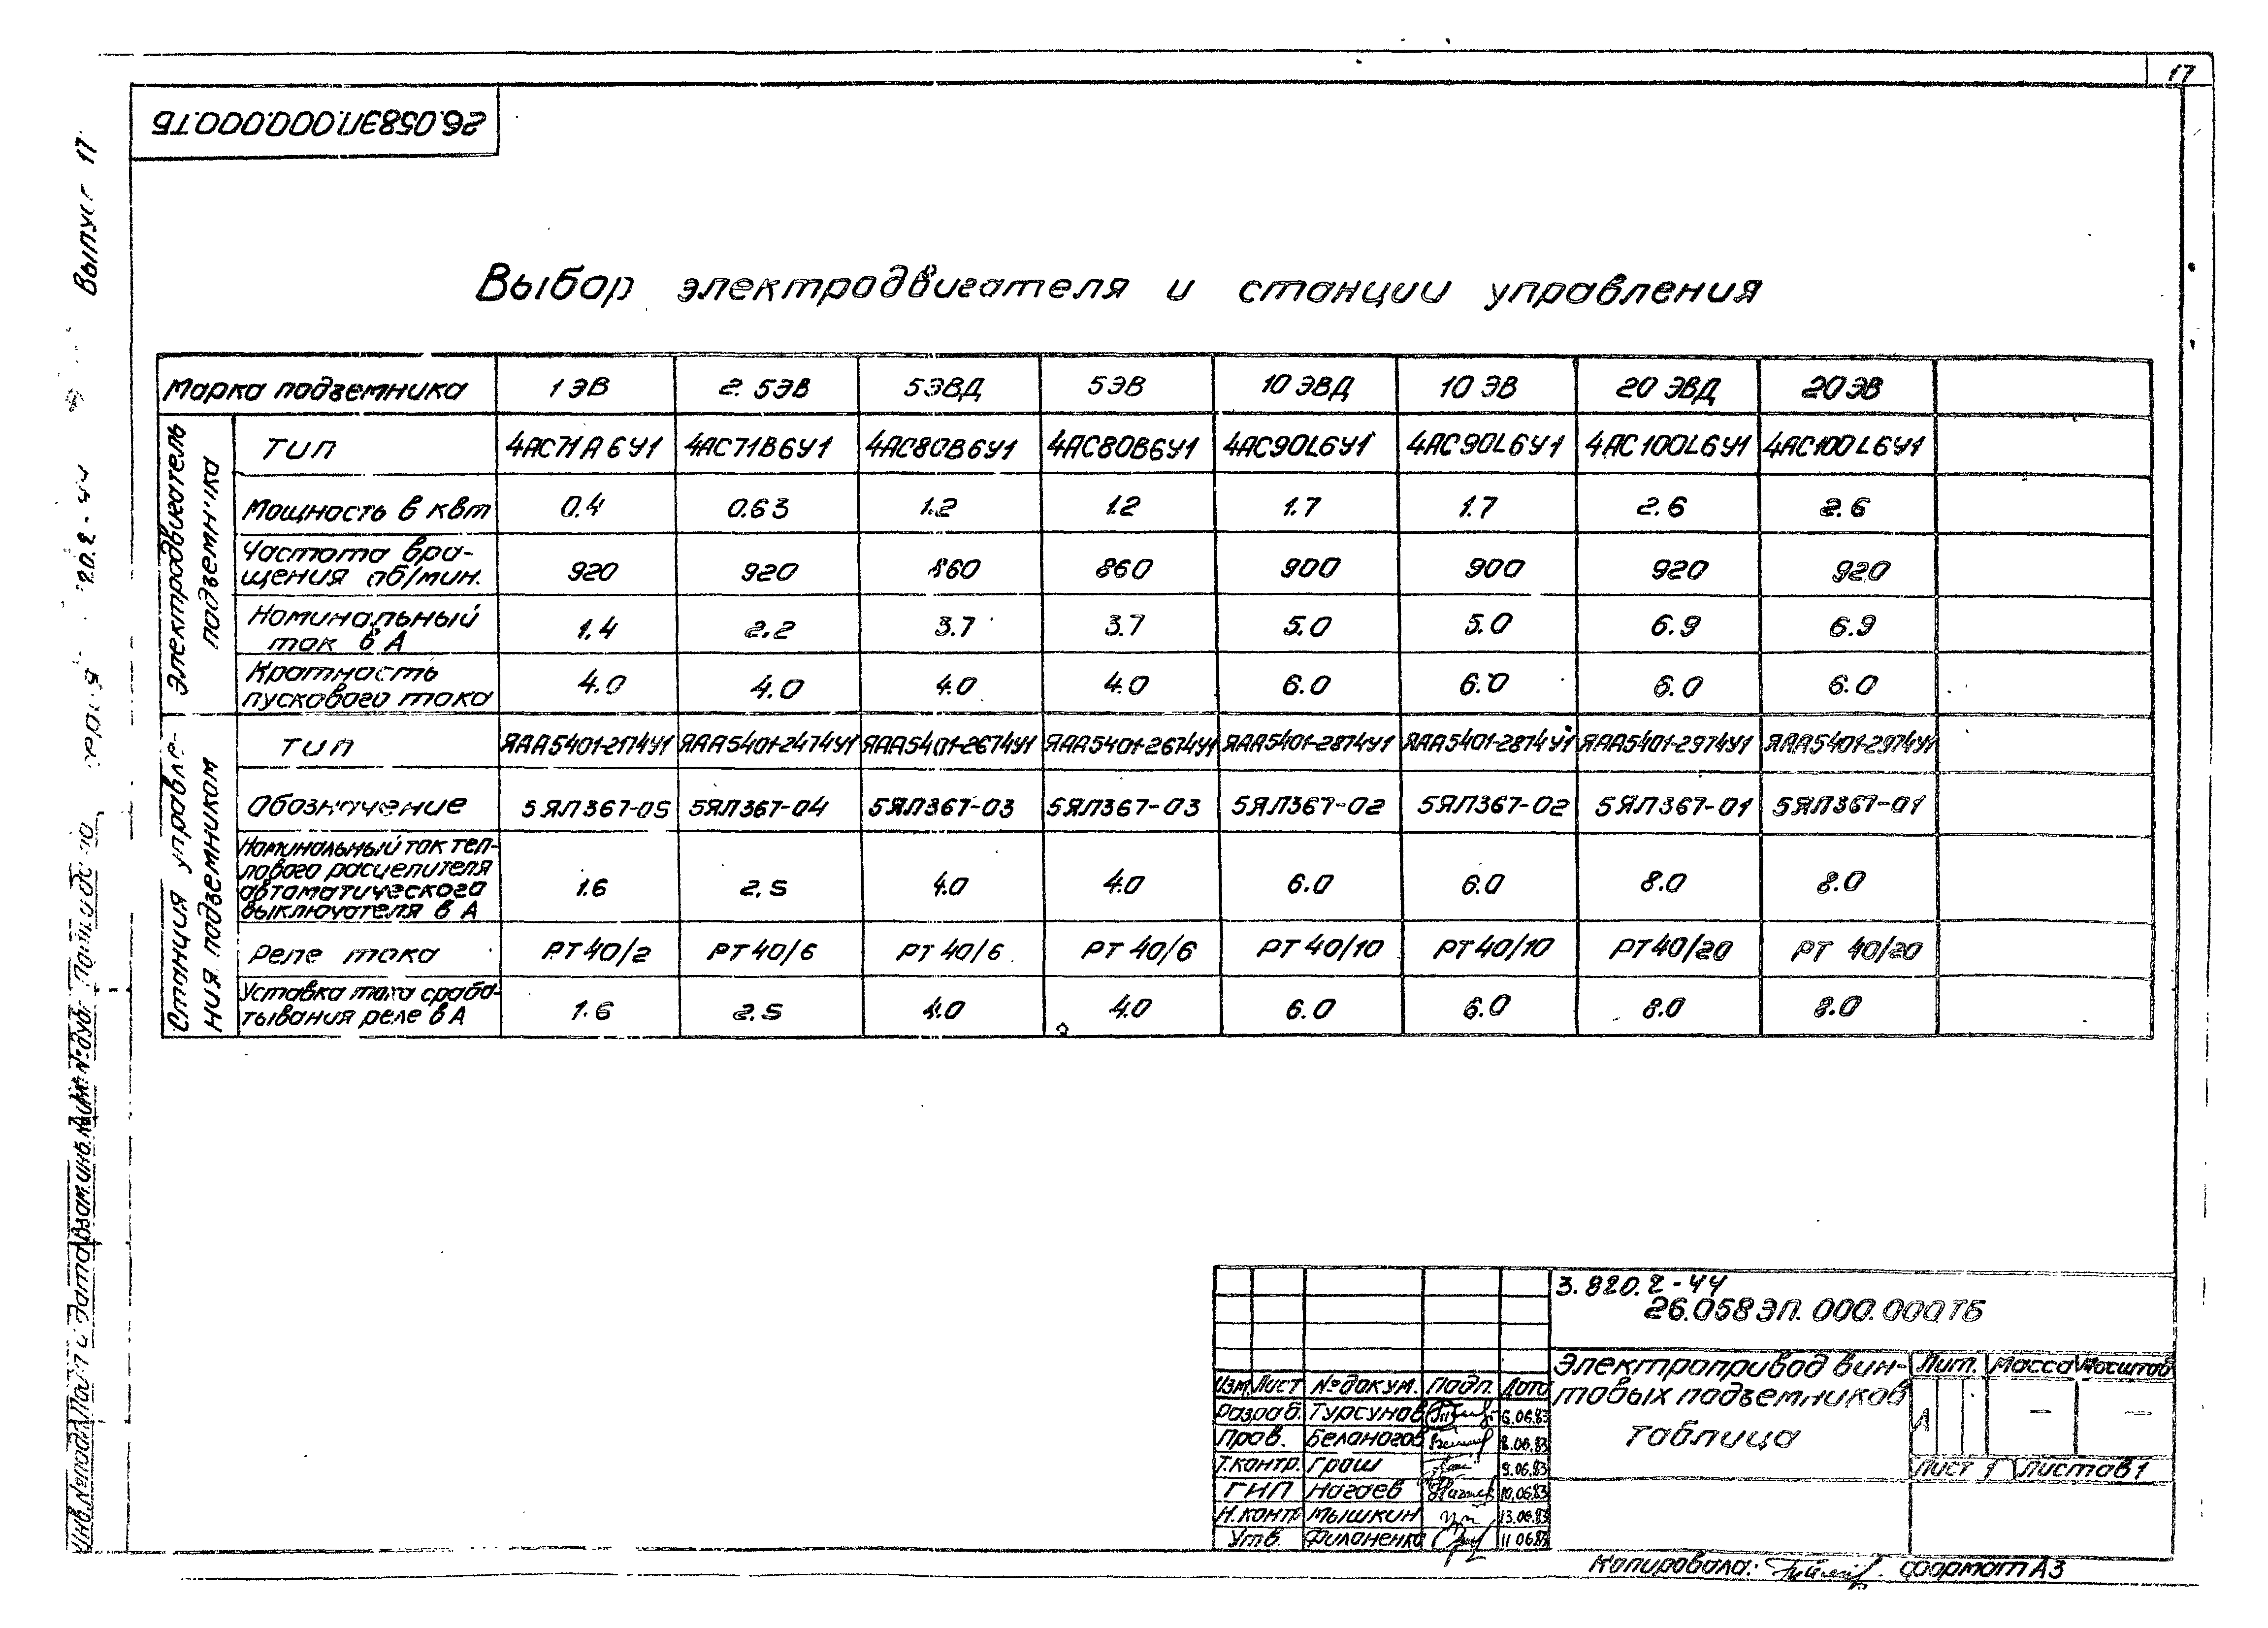 17
26.058ЭП.000.000.ТБ
Выпуск 17
Выбор электродвигателя и станции управления
Марка подъемника 1 ЭВ 2.5ЭВ 5ЭВД 5ЭВ 10 ЭВД 10 ЭВ 20 ЭВД 20 ЭВ
Электродвигатель
подъемника
Тип 4АС71А6У1 4АС71В6У1 4АС80В6У1 4АС80В6У1 4АС90L6У1 4АС90L6У1 4АС100L6У1 4АС100L6У1
Мощность в квт 0.4 0.63 1.2 1.2 1.7 1.7 2.6 2.6
Частота вра-
щения об/мин. 920 920 860 860 900 900 920 920
Номинальный
ток в А 1.4 2.2 3.7 3.7 5.0 5.0 6.9 6.9
Кратность
пускового тока 4.0 4.0 4.0 4.0 6.0 6.0 6.0 6.0
Станция управле-
ния подъемником
Тип ЯАА5401-2174У1 ЯАА5401-2474У1 ЯАА5401-2674У1 ЯАА5401-2674У1 ЯАА5401-2874У1 ЯАА5401-2874У1 ЯАА5401-2974У1 ЯАА5401-2974У1
Обозначение 5ЯЛ367-05 5ЯЛ367-04 5ЯЛ367-03 5ЯЛ367-03 5ЯЛ367-02 5ЯЛ367-02 5ЯЛ367-01 5ЯЛ367-01
Номинальный ток теп-
лового расцепителя
автоматического
выключателя в А 1.6 2.5 4.0 4.0 6.0 6.0 8.0 8.0
Реле тока РТ 40/2 РТ 40/6 РТ 40/6 РТ 40/6 РТ 40/10 РТ 40/10 РТ 40/20 РТ 40/20
Уставка тока сраба-
тывания реле в А 1.6 2.5 4.0 4.0 6.0 6.0 8.0 8.0
3.820.2-44
26.058ЭП.000.000ТБ
Электропривод вин-
товых подъемников
Таблица
Лит. Масса Масштаб
А — —
Лист 1 Листов 1
Изм. Лист № докум. Подп. Дата
Разраб. Турсунов 6.06.83
Пров. Белоногов 8.06.83
Т.контр. Граш 9.06.83
ГИП Нагаев 10.06.83
Н.контр Мышкин 13.06.83
Утв. Филоненко 11 06.83
Копировала: Формат А3